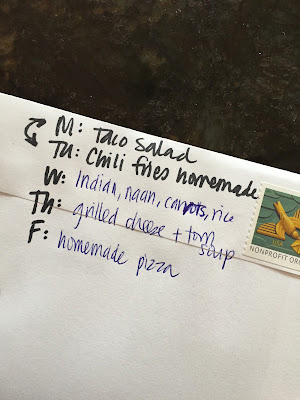 M: Taco Salad
Tu: Chili fries homemade
W: Indian, naan, carrots, rice
Th: grilled cheese + tom soup
F: homemade pizza
USA
NONPROFIT OR